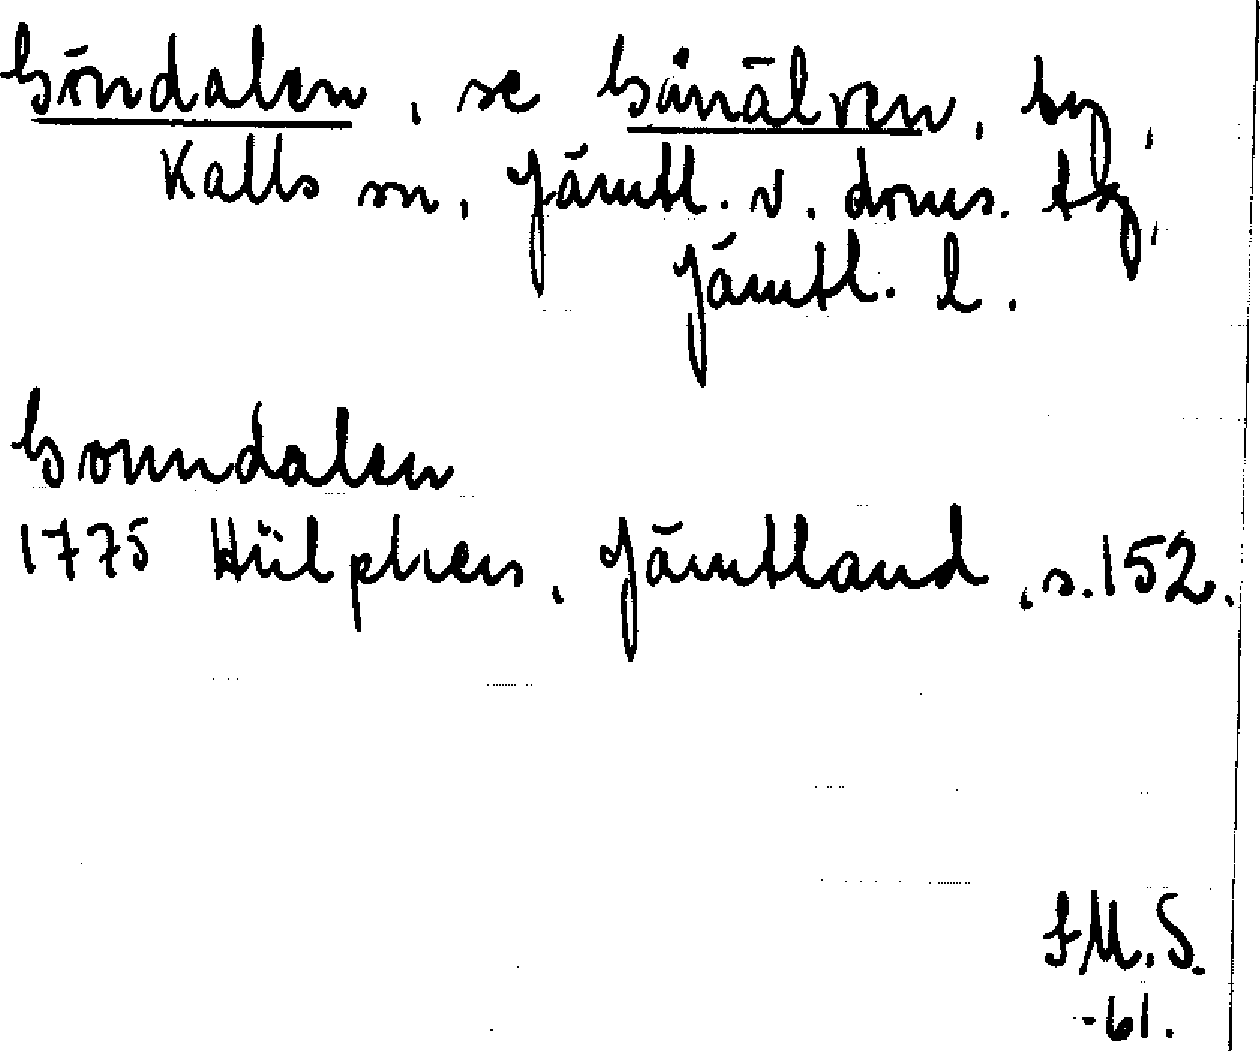 Göndalen, se Gånälven, by,
Kalls sn, Jämtl. v. doms. tg,
Jämtl. l.
Gonndalen
1775 Hülphers, Jämtland, s. 152.
-61.